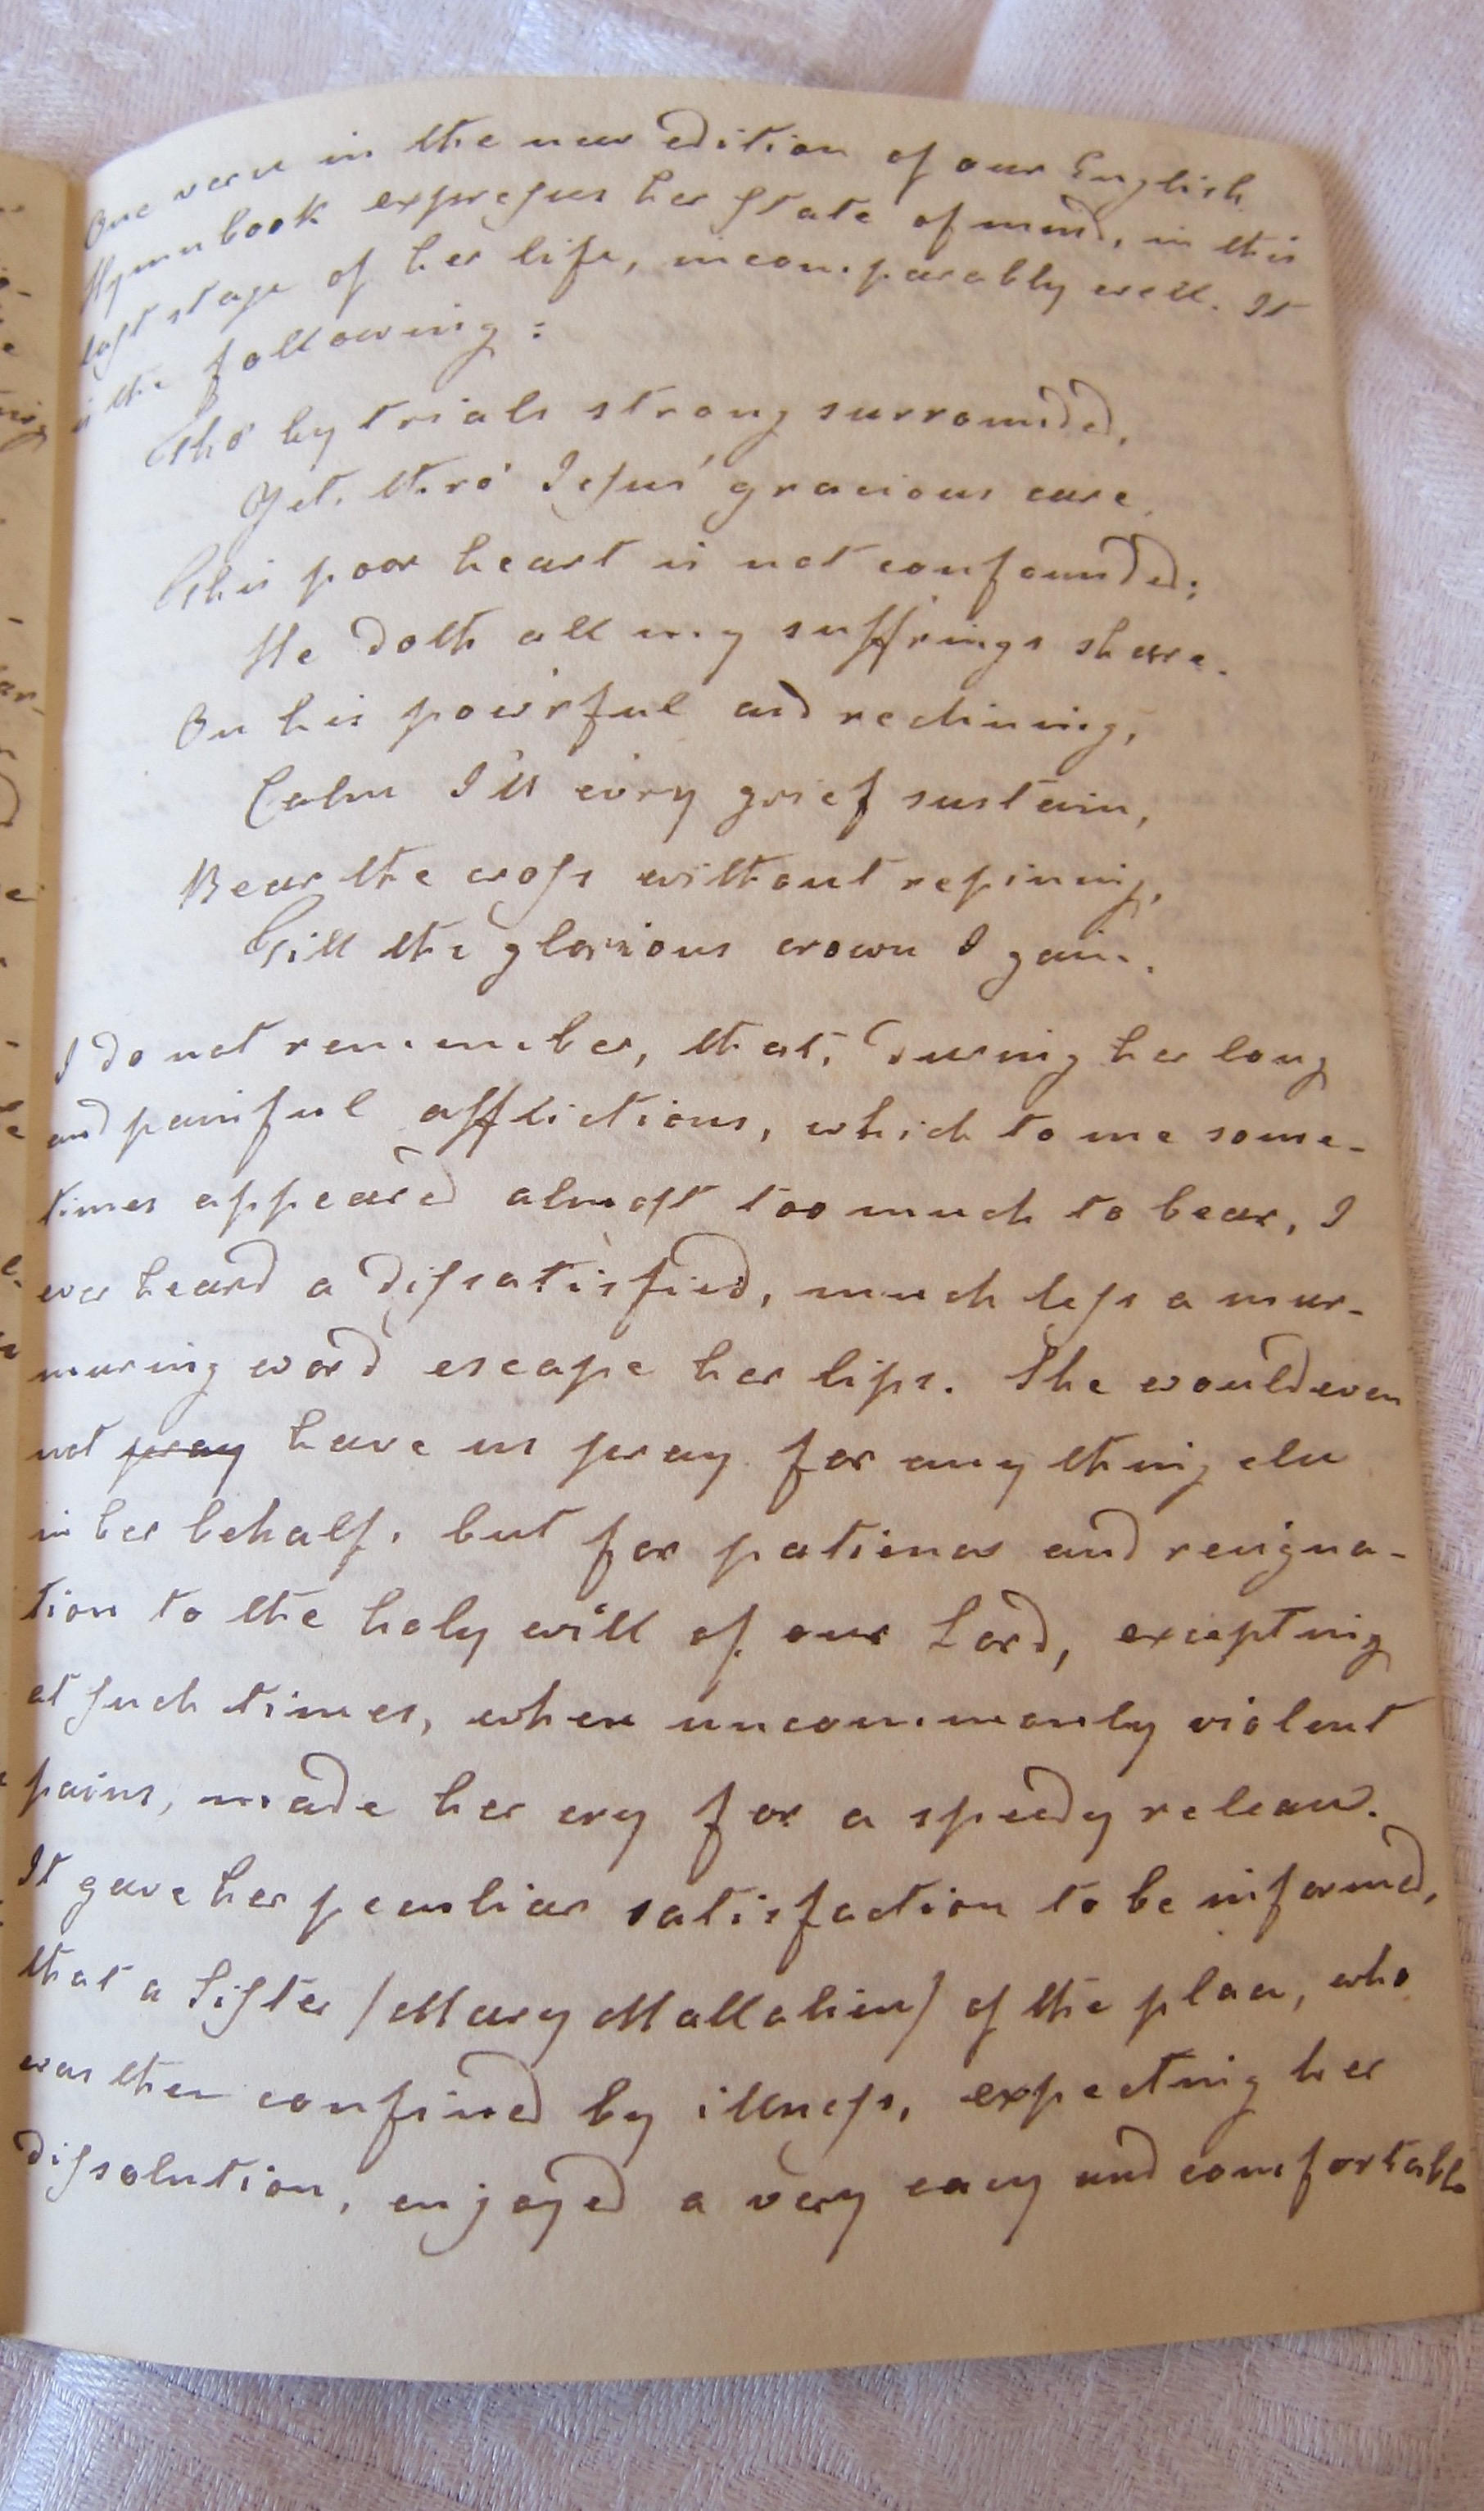 One verse in the new Edition of our English
Hymnbook expresses her State of mind, in this
last stage of her life, incomparably well. It
is the following:
Tho' by trials strong surrounded,
Yet, thro' Jesus' gracious care,
This poor heart is not confounded;
He doth all my suff'rings share.
On his pow'rful aid reclining,
Calm I'll ev'ry grief sustain,
Bear the cross without repining,
Till the glorious crown I gain.
I do not remember, that, during her long
and painful afflictions, which to me some-
times appeared almost too much to bear, I
ever heard a dissatisfied, much less a mur-
muring word escape her lips. She would even
not pray have us pray for any thing else
in her behalf, but for patience and resigna-
tion to the holy will of our Lord, excepting
at such times, when uncommonly violent
pains, made her cry for a speedy release.
It gave her peculiar satisfaction to be informed,
that a Sister /Mary Mallalieu/ of the place, who
was then confined by illness, expecting her
dissolution, enjoyed a very easy and comfortable